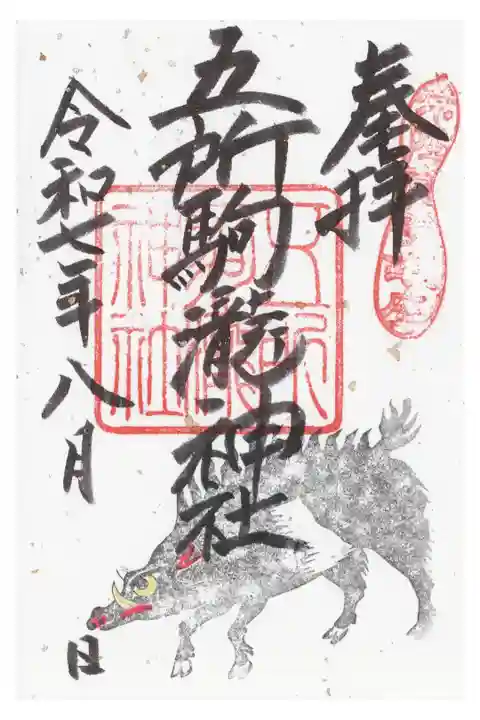 奉拝
五所駒瀧神社
令和七年八月 日
五所駒瀧神社